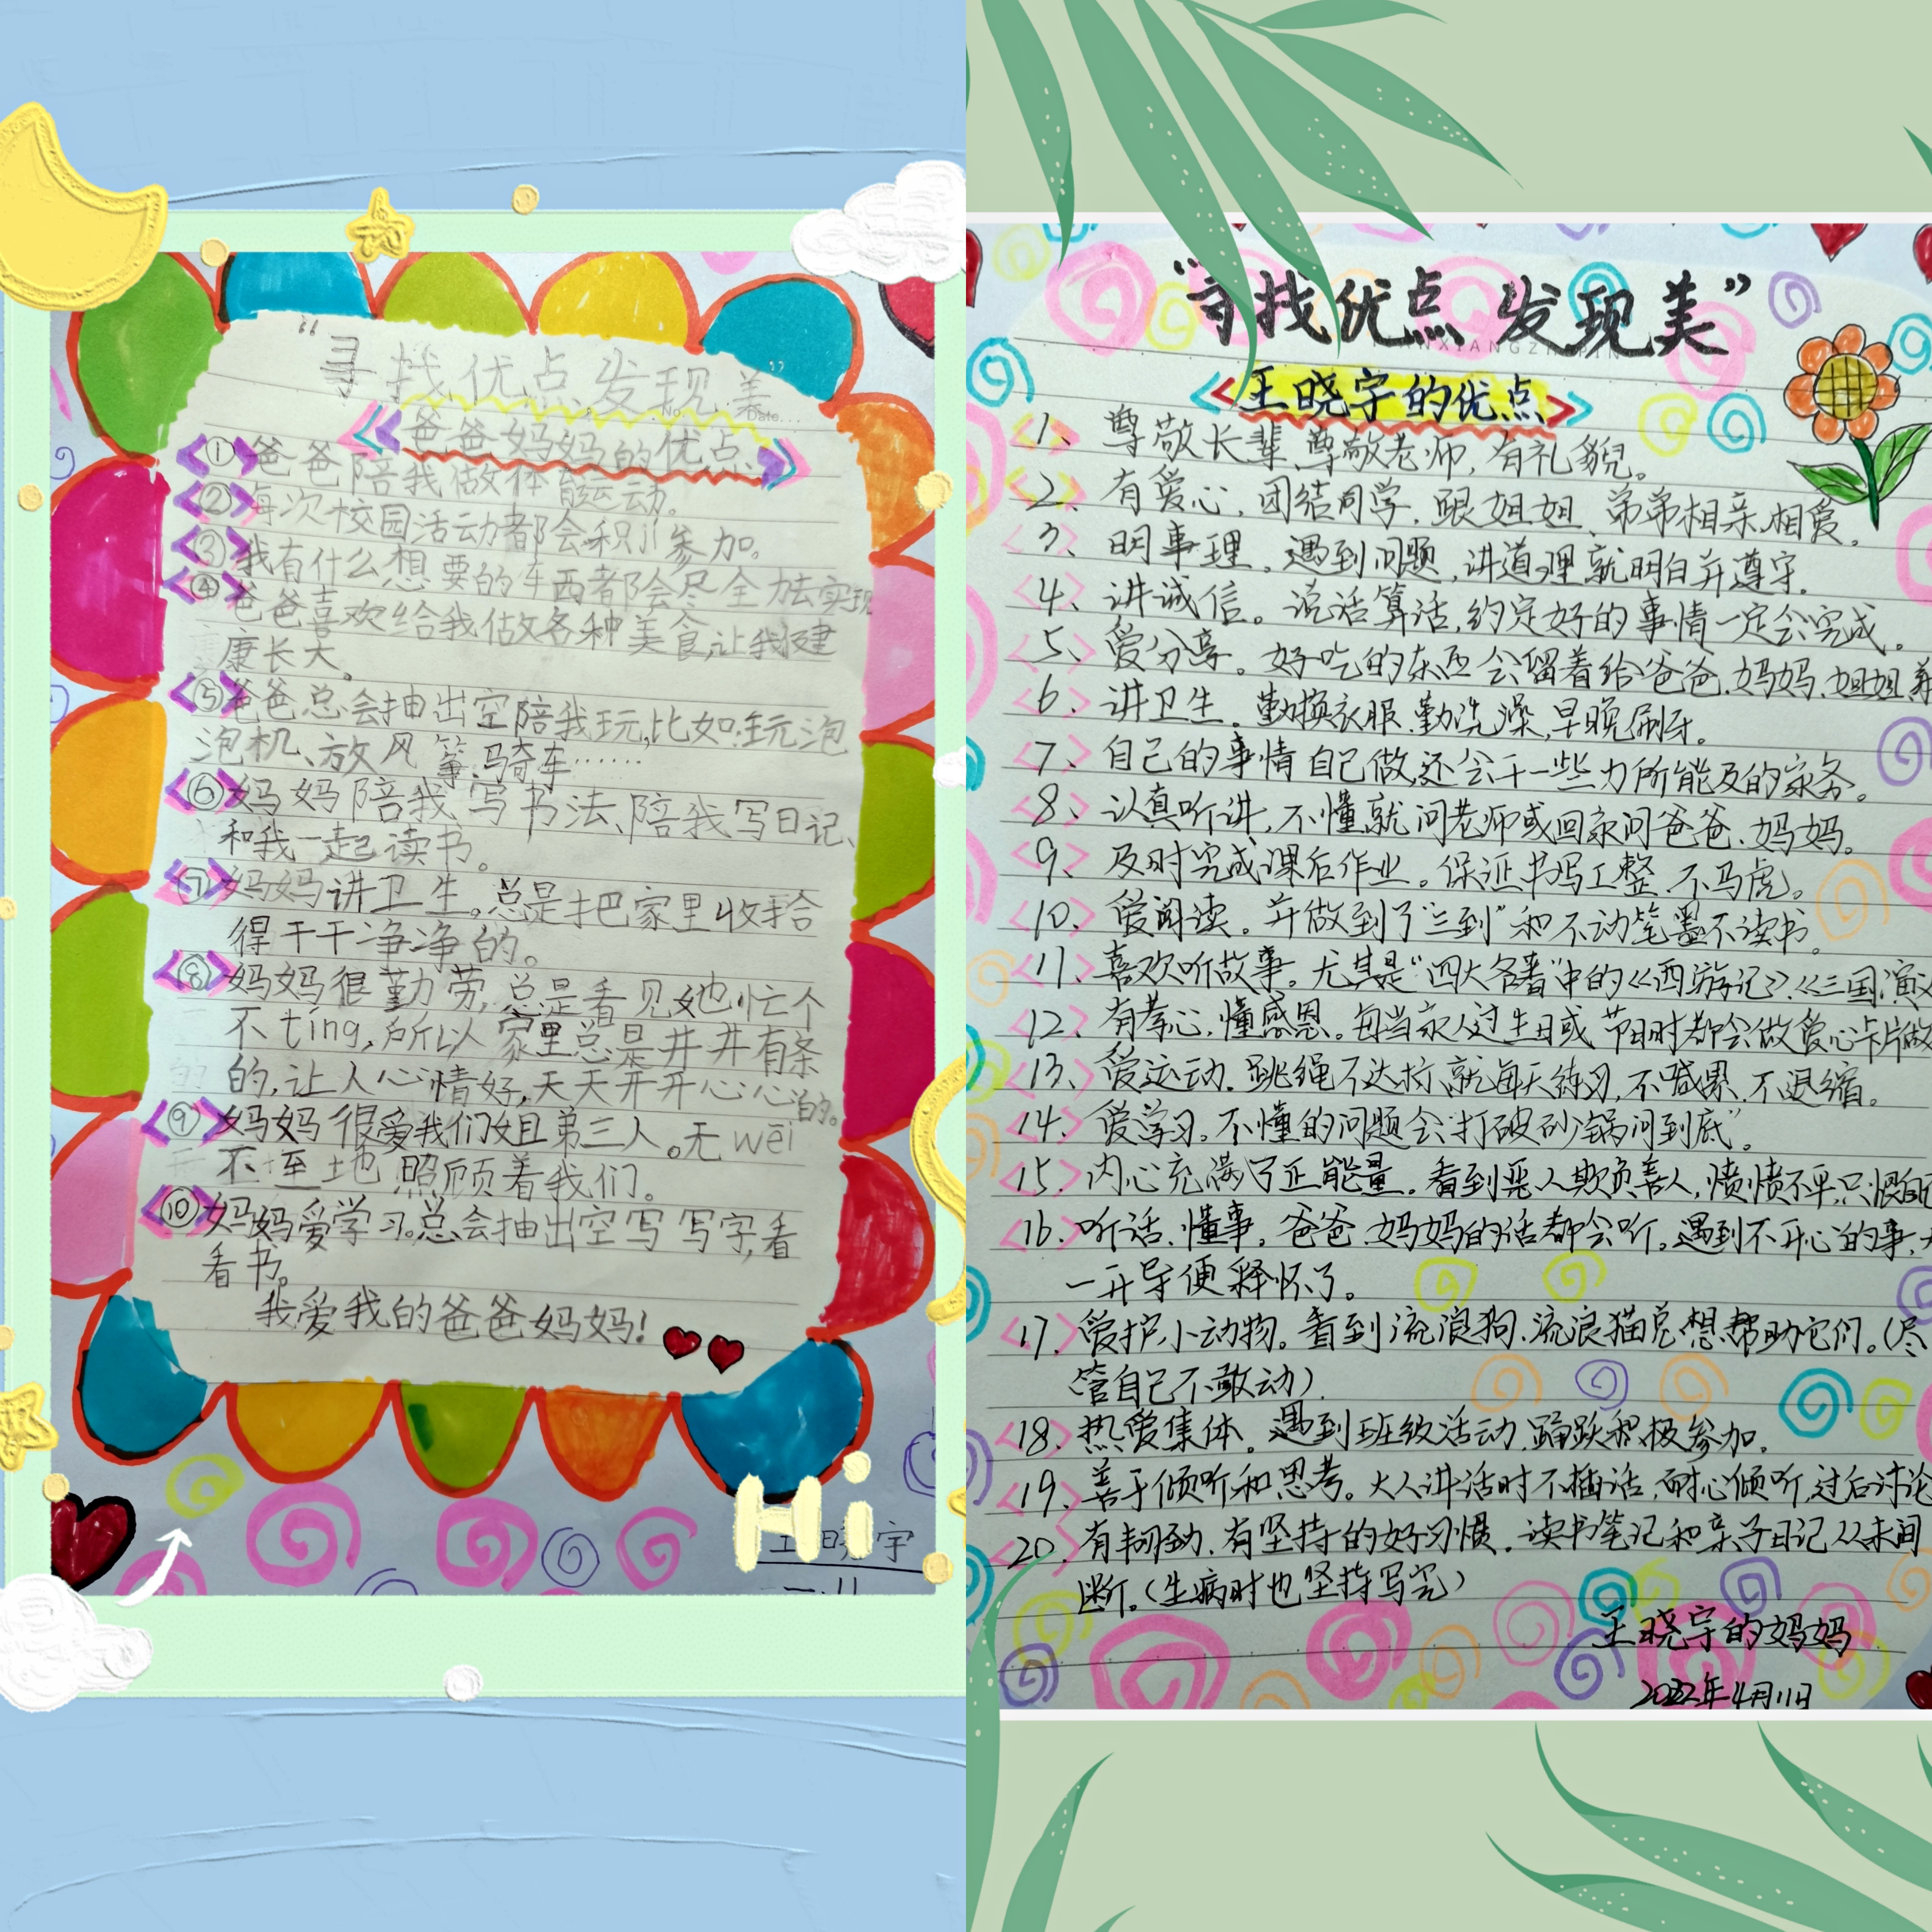 “寻找优点发现美”
爸爸妈妈的优点
①爸爸陪我做体育运动。
②每次校园活动都会积jí参加。
③我有什么想要的东西都会尽全力去实现
④爸爸喜欢给我做各种美食,让我健
康长大。
⑤爸爸总会抽出空陪我玩,比如:玩泡
泡机、放风筝、骑车……
⑥妈妈陪我写书法、陪我写日记、
和我一起读书。
⑦妈妈讲卫生。总是把家里收拾
得干干净净的。
⑧妈妈很勤劳,总是看见她忙个
不tíng,所以家里总是井井有条
的,让人心情好,天天开开心心的。
⑨妈妈很爱我们姐弟三人。无wēi
不至地照顾着我们。
⑩妈妈爱学习。总会抽出空写写字,看
看书。
我爱我的爸爸妈妈!
Hi
宇
一.11
“寻找优点 发现美”
《王晓宇的优点》
1、尊敬长辈、尊敬老师,有礼貌。
2、有爱心,团结同学,跟姐姐、弟弟相亲相爱。
3、明事理。遇到问题,讲道理就明白并遵守。
4、讲诚信。说话算话,约定好的事情一定会完成。
5、爱分享。好吃的东西会留着给爸爸、妈妈、姐姐、弟
6、讲卫生。勤换衣服、勤洗澡,早晚刷牙。
7、自己的事情自己做,还会干一些力所能及的家务。
8、认真听讲,不懂就问老师或回家问爸爸、妈妈。
9、及时完成课后作业。保证书写工整、不马虎。
10、爱阅读。并做到了“三到”和不动笔墨不读书。
11、喜欢听故事。尤其是“四大名著”中的《西游记》、《三国演义
12、有孝心,懂感恩。每当家人过生日或节日时都会做爱心卡片做
13、爱运动。跳绳不达标,就每天练习,不喊累、不退缩。
14、爱学习。不懂的问题会“打破砂锅问到底”。
15、内心充满了正能量。看到恶人欺负善人,愤愤不平,只恨自己
16、听话、懂事。爸爸、妈妈的话都会听。遇到不开心的事,大
一开导便释怀了。
17、爱护小动物。看到流浪狗、流浪猫总想帮助它们。(尽
管自己不敢动).
18、热爱集体。遇到班级活动,踊跃积极参加。
19、善于倾听和思考。大人讲话时不插话,耐心倾听,过后讨论
20、有韧劲、有坚持的好习惯。读书笔记和亲子日记从未间
断。(生病时也坚持写完)
王晓宇的妈妈
2022年4月11日